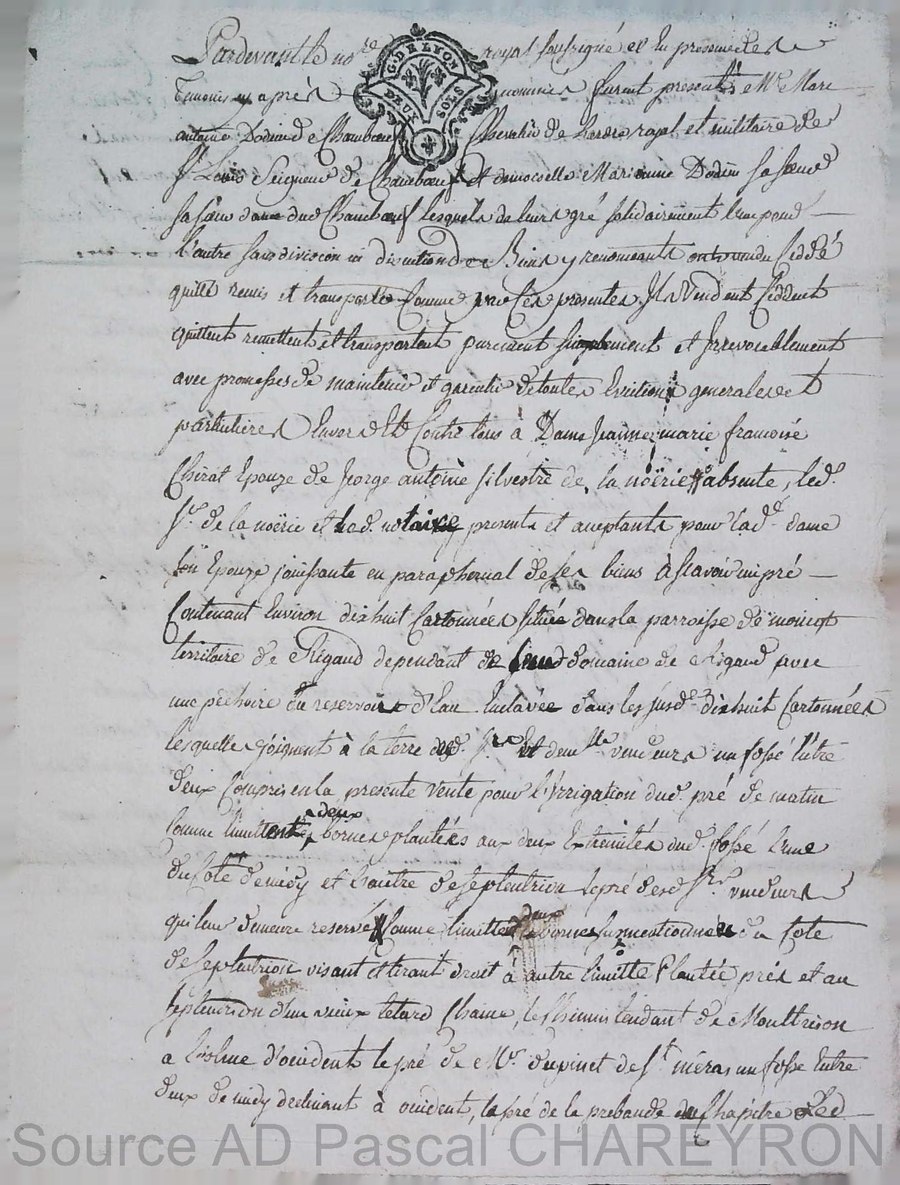 Pardevant le no.re royal soussigné et en presence des
temoins cy après nommés furent presents Mre Marc
G. DE LYON
DEUX SOLS
antoine Dodin de Chambœuf Chevalier de Lordre royal et militaire de
St. Louis Seigneur de Chambœuf et demoiselle Marianne Dodin sa sœur
sa sœur dame dud Chambœuf lesquels de leurs gré solidairement l'un pour
l'autre sans division ni discution de Biens y renonceants ont vendu Ceddé
quitté remis et transporté Comme par Ces presentes Ils Vendent Ceddent
quittent remettent et transportent purement simplement et Irrevocablement
avec promesses de maintenir et garentir de toutes Evictions generales et
particulieres Envers Et Contre tous à Dame Jeanne marie francoise
Chirat Epouze de George antoine Silvestre de la noërie absente, led.
Sr. de la noërie et led. notaire presents et aceptants pour lad.e dame
son Epouze jouissante en paraphernal de ses biens à scavoir un pré
Contenant Environ dixhuit Cartonnées située dans la parroisse de
territoire de Rigaud dependant de domaine de Rigaud avec
une pêchoire ou reservoir d'eau Enclavée dans les susd. dixhuit Cartonnées
lesquelles joignent à la terre desd. Srs et demlle vendeurs un fossé Entre
deux Compris en la presente Vente pour l'Irrigation dud. pré de matin
Comme limittent deux bornes plantées aux deux Extremités dud. fossé l'une
du Coté de midy et l'autre de septentrion le pré desd Srs vendeurs
qui leur demeure reservé Comme limittent deux bornes susmentionnées du Coté
de septentrion visant et tirant droit à autre limitte Plantée près et au
septentrion d'un vieux tetard Chaine, le Chemin tendant de Montbrison
a d'occident le pré de Mr. dupinet de St. un fosse Entre
deux de midy declinant à occident, le pré de la prebande du Chapitre Led
Source AD Pascal CHAREYRON